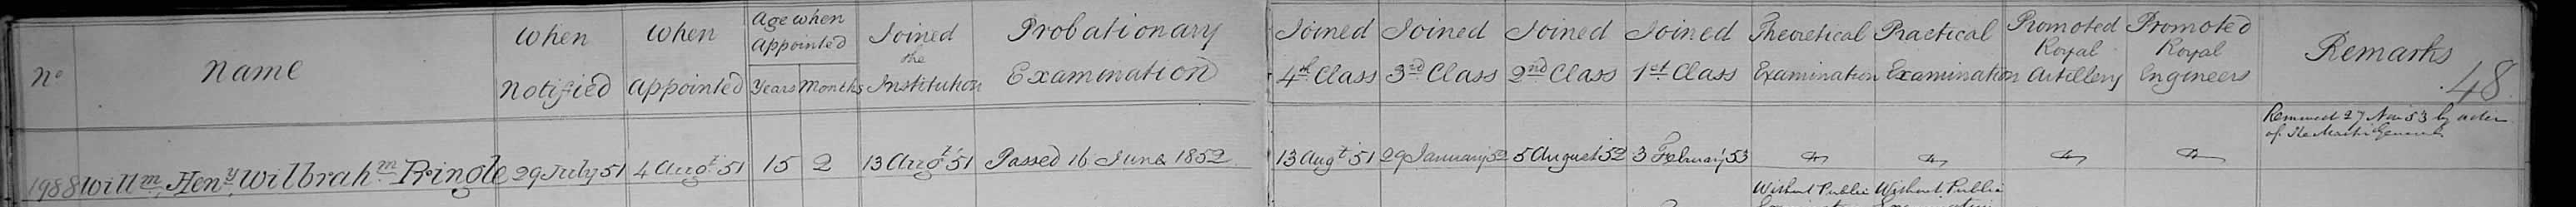 No Name When Notified When Appointed Age when Appointed Years Months Joined the Institution Probationary Examination Joined 4th Class Joined 3rd Class Joined 2nd Class Joined 1st Class Theoretical Examination Practical Examination Promoted Royal Artillery Promoted Royal Engineers Remarks
48
Removed 27 Nov 53 by order
of the Master General
1988 Willm. Heny. Wilbrahm. Pringle 29 July 51 4 Augt. 51 15 2 13 Augt. 51 Passed 16 June 1852 13 Augt 51 29 January 52 5 August 52 3 February 53
Without Public Without Public